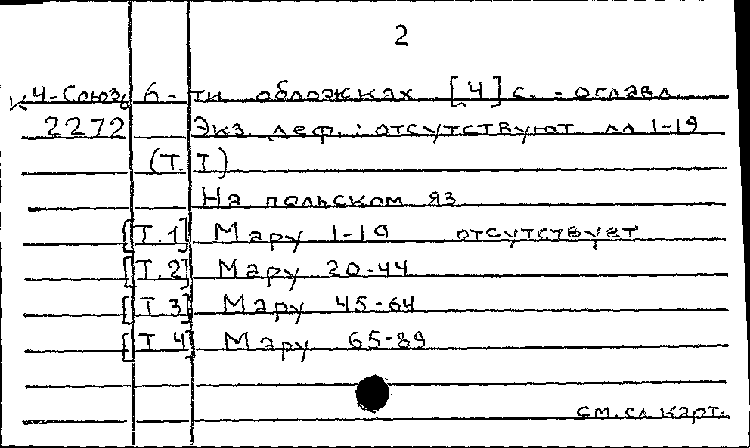 2
К 4-Союз 6-ти обложках [4] с. - оглавл.
2272 Экз. деф.: отсутствуют лл 1-19
(Т. I)
На польском яз
[Т. 1] Мару 1-19 отсутствует
[Т. 2] Мару 20-44
[Т. 3] Мару 45-64
[Т. 4] Мару 65-89
см. сл карт.